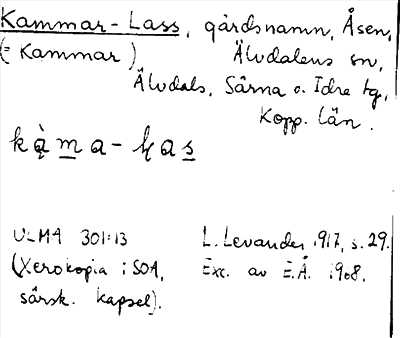 Kammar-Lass, gårdsnamn, Åsen,
(= Kammar) Älvdalens sn,
Älvdals, Särna o. Idre tg,
Kopp. län.
kàma-ļas
ULMA 301:13 L. Levander 1917, s. 29.
(Xerokopia i SOA, Exc. av E.Å. 1908.
särsk. kapsel).